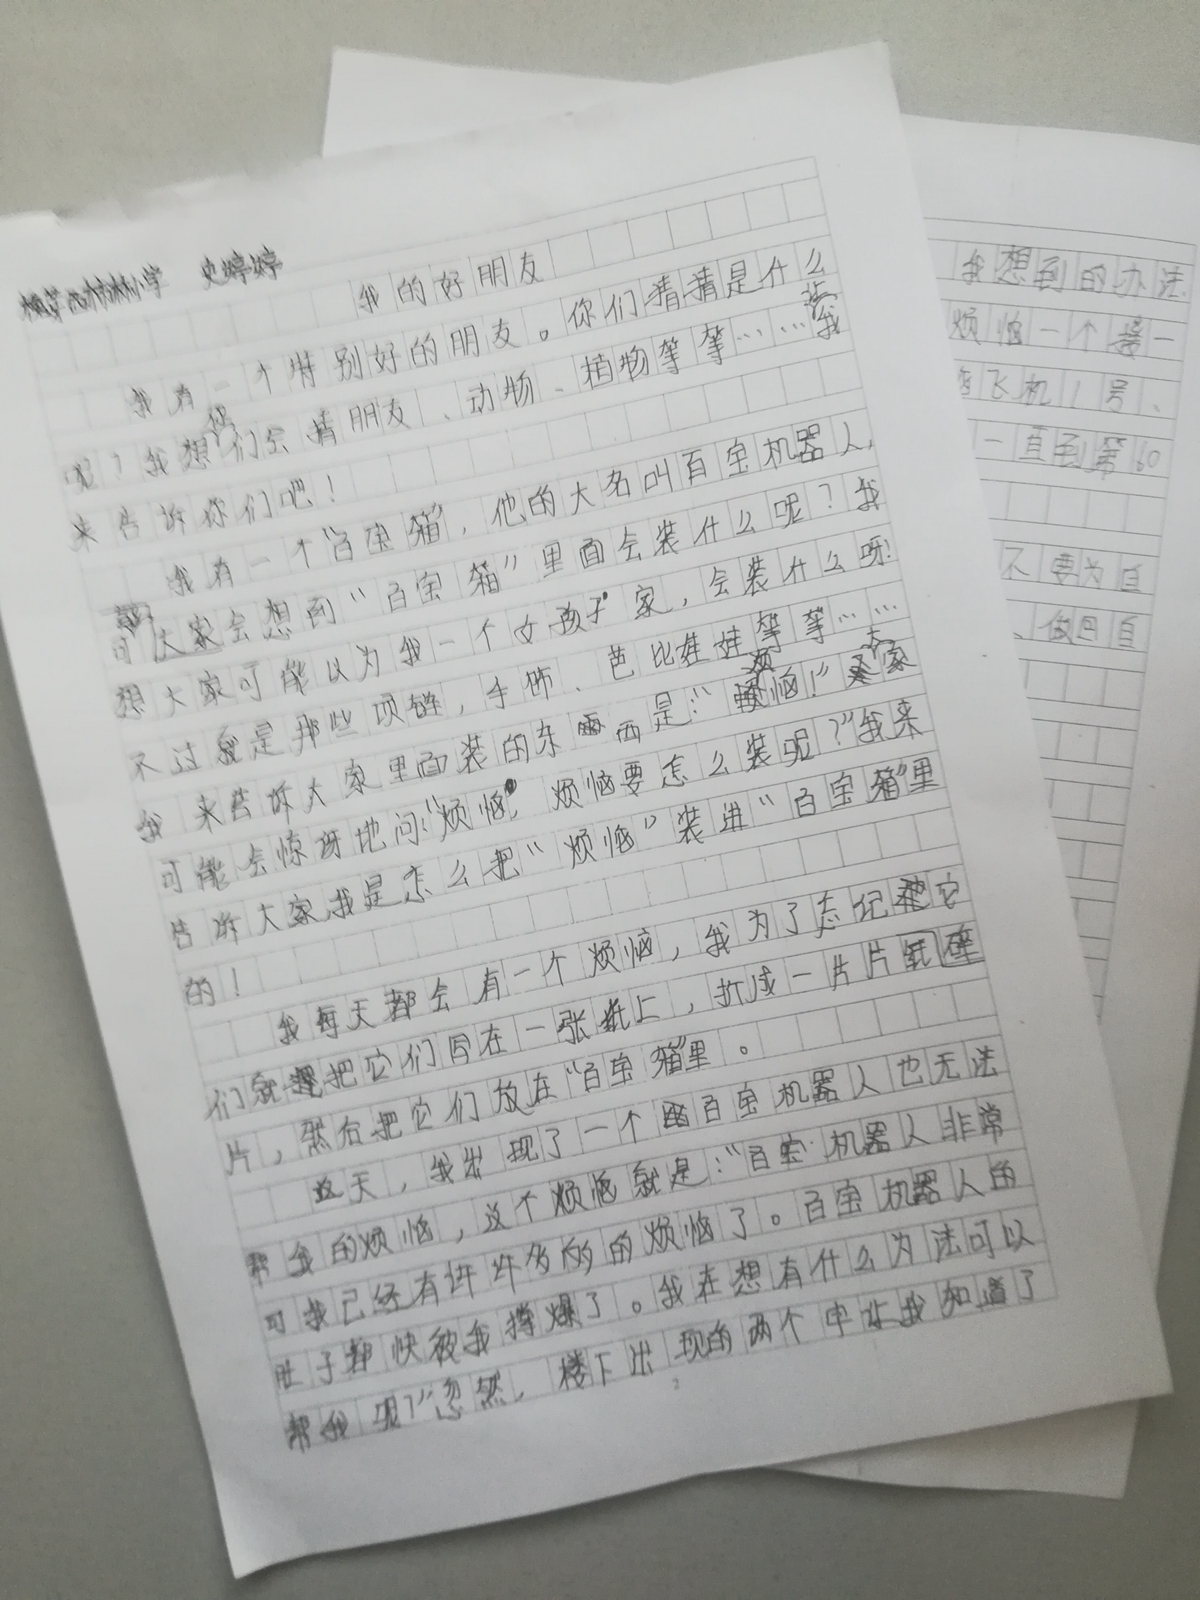 小学 史婷婷
我的好朋友
我有一个特别好的朋友。你们猜猜是什么
呢？我想你们会猜朋友、动物、植物等等……让我
来告诉你们吧！
我有一个“百宝箱”，他的大名叫百宝机器人，
可大家会想到“百宝箱”里面会装什么呢？我
想大家可能以为我一个女孩子家，会装什么呀！
不过就是那些项链，手饰、芭比娃娃等等……
我来告诉大家里面装的东西是：“烦恼！”大家
可能会惊讶地问：“烦恼，烦恼要怎么装呢？”我来
告诉大家我是怎么把“烦恼”装进“百宝箱”里
的！
我每天都会有一个烦恼，我为了忘记它
们就把它们写在一张纸上，折成一片片纸碎
片，然后把它们放在“百宝箱”里。
这天，我出现了一个百宝机器人也无法
帮我的烦恼，这个烦恼就是：“百宝机器人非常
可我已经有许许多多的烦恼了。百宝机器人的
肚子都快被我撑爆了。我在想有什么方法可以
帮我呢？”忽然，楼下出现的两个中让我知道了
我想到的办法
烦恼一个接一
飞机1号、
一直到第60
不要为自
做回自